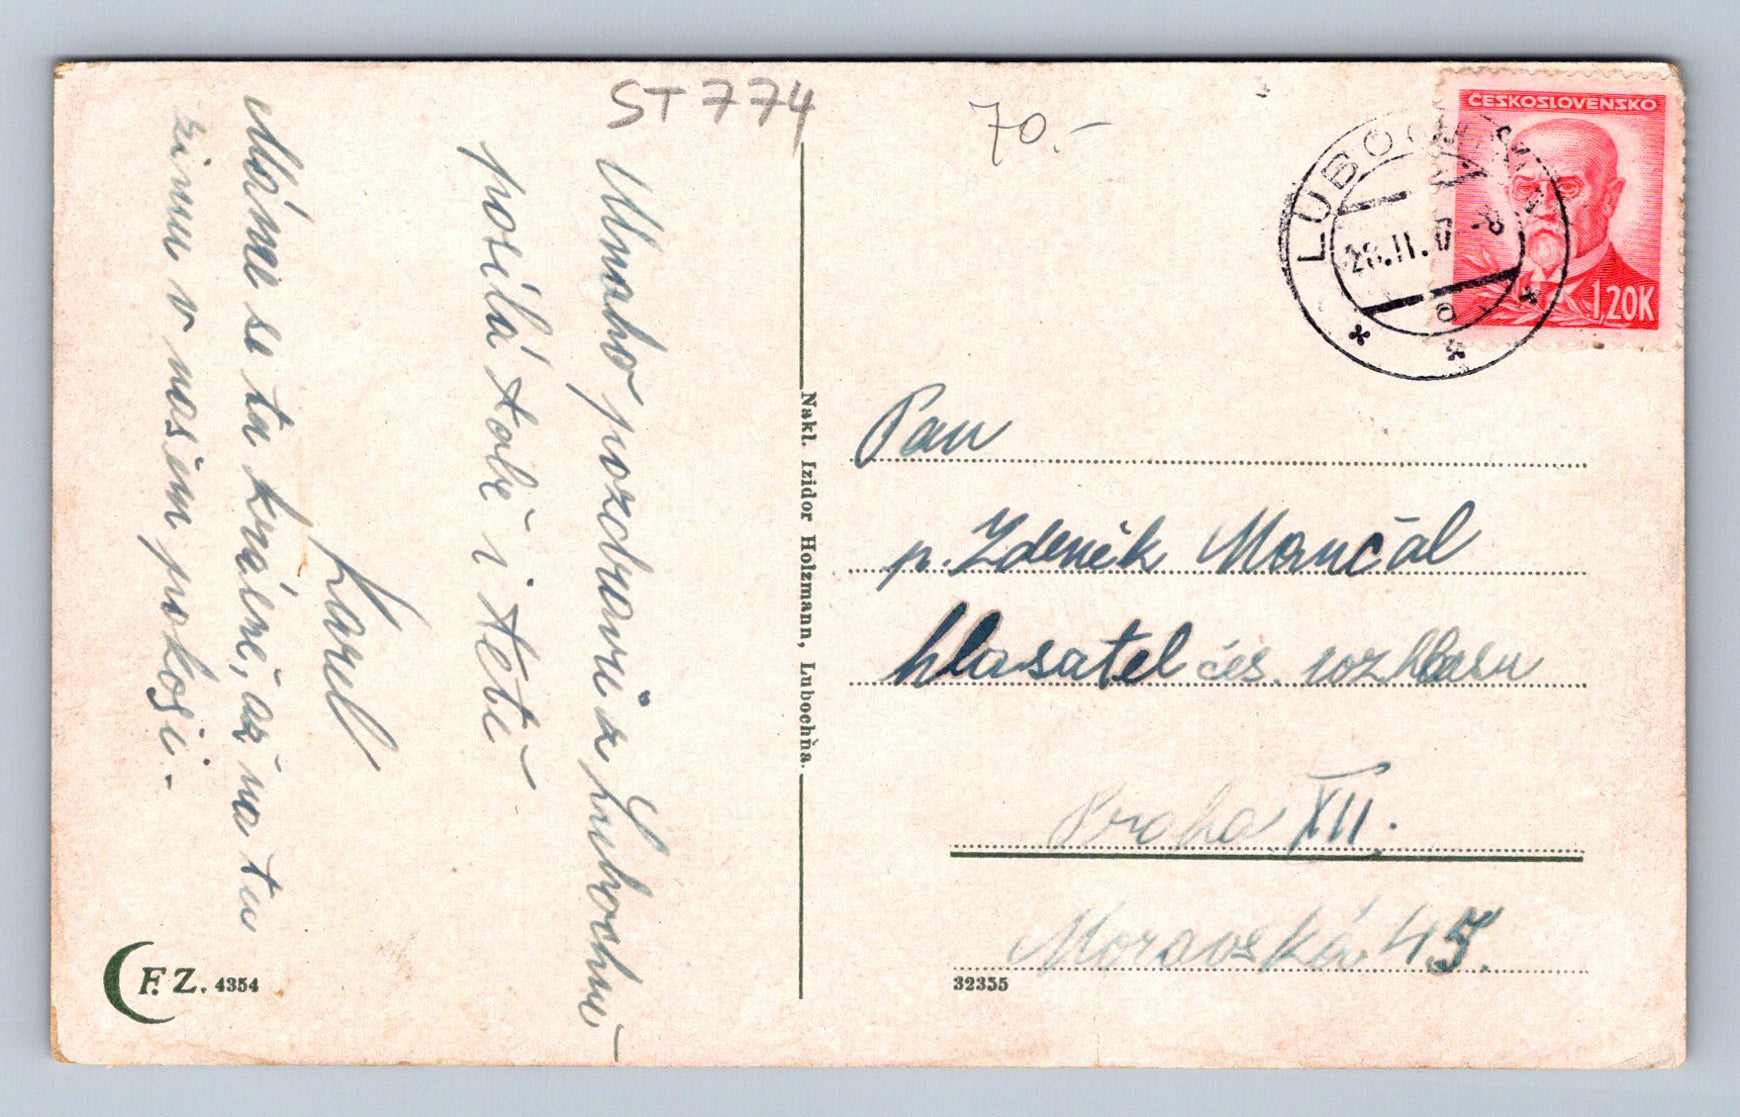 ST 774
70.-
ČESKOSLOVENSKO
1,20K
28.II. 47 -8
Mnoho pozdravů z Lubochně
posílá tobě i tetě
Karel
Máme se tu krásně, až na tu
zimu v našem pokoji.-
Nakl. Izidor Holzmann, Lubochňa.
Pan
p. Zdeněk Mančal
hlasatel čes. rozhlasu
Praha XII.
Moravská 45.
C F. Z. 4354
32355